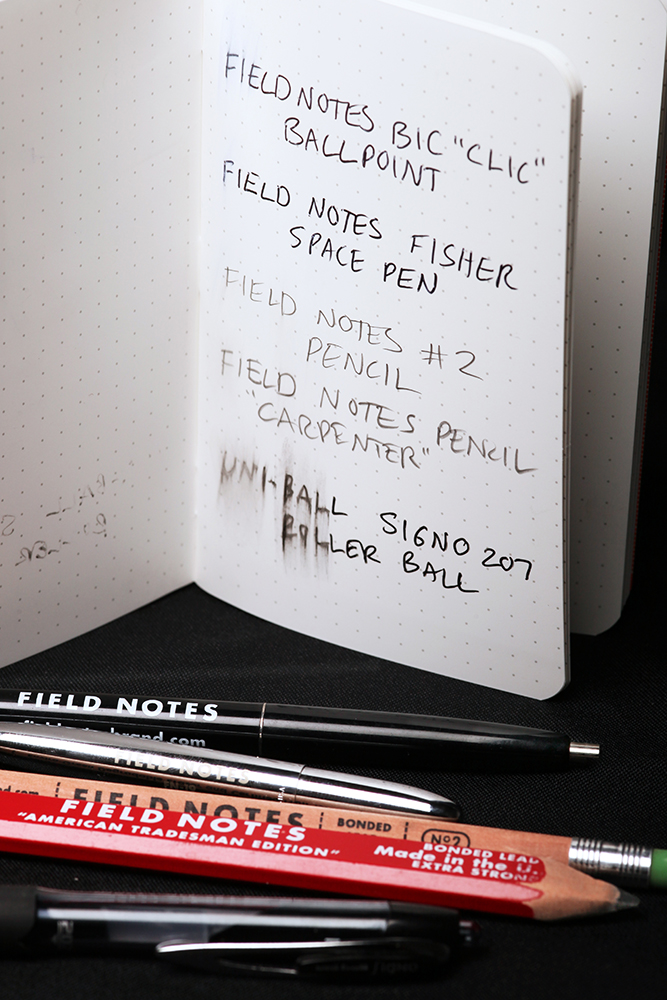 FIELD NOTES BIC "CLIC"
BALLPOINT
FIELD NOTES FISHER
SPACE PEN
FIELD NOTES #2
PENCIL
FIELD NOTES PENCIL
"CARPENTER"
UNI-BALL SIGNO 207
ROLLER BALL
FIELD NOTES
FIELD NOTES
FIELD NOTES BONDED No2
FIELD NOTES
"AMERICAN TRADESMAN EDITION"
BONDED LEAD
Made in the
EXTRA STRONG